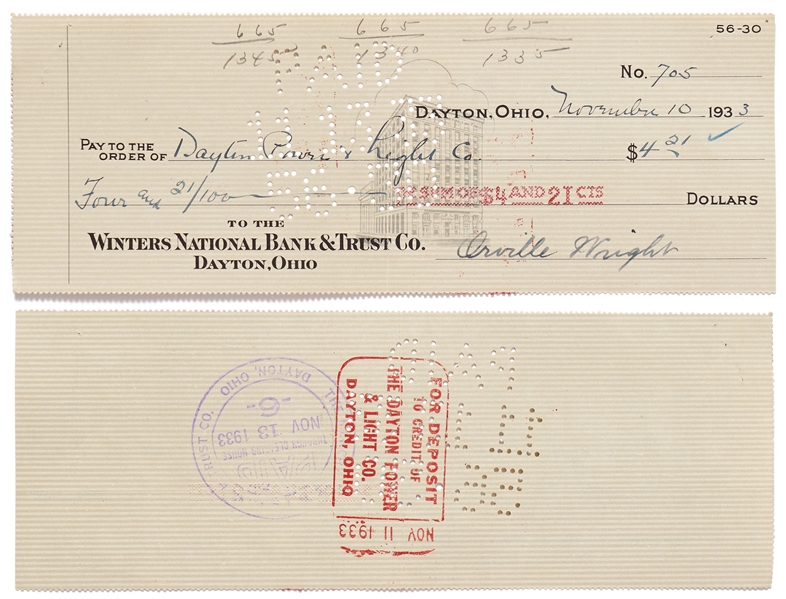 665 665 665
1345 1340 1335
56-30
No. 705
DAYTON, OHIO, November 10 1933
PAY TO THE
ORDER OF Dayton Power & Light Co. $4 21
Four and 21/100 THE SUM OF $4 AND 21 CTS DOLLARS
TO THE
WINTERS NATIONAL BANK & TRUST CO.
DAYTON, OHIO
Orville Wright
FOR DEPOSIT
TO CREDIT OF
THE DAYTON POWER
& LIGHT CO.
DAYTON, OHIO
NOV 11 1933
TRUST CO. DAYTON, OHIO
-6-
NOV 13 1933
PAID